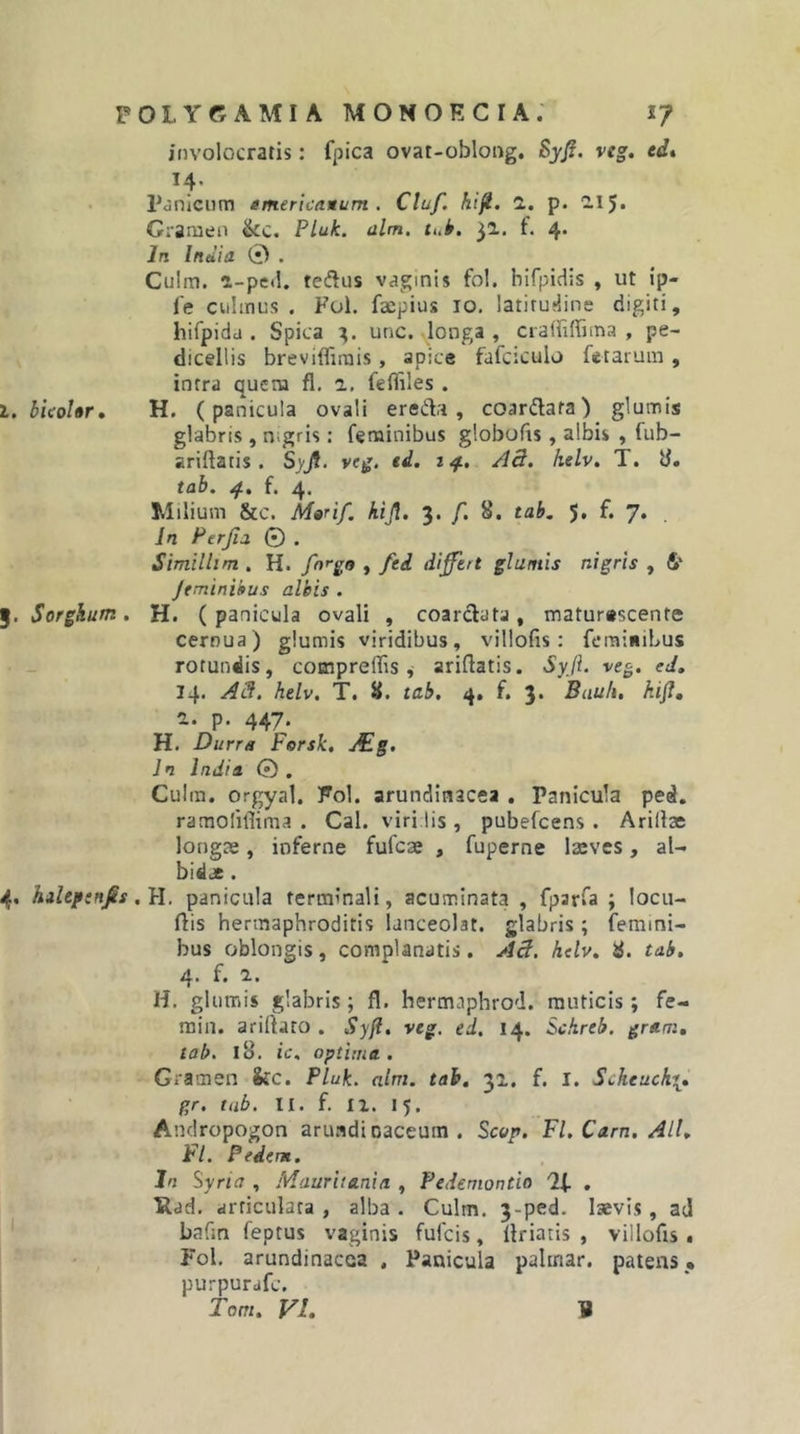 POLYGAMIA MONOECIA. 17
involocratis: ſpica ovat-oblong. Syſt. veg. ed.
14.
Panicum americanum. Cluſ. hiſt. 2. p. 215.
Gramen &c. Pluk. alm. tab. 32. f. 4.
In India ☉ .
Culm. 2-ped. tectus vaginis fol. hiſpidis , ut ip-
ſe culmus . Fol. ſæpius 10. latitudine digiti,
hiſpida . Spica 3. unc. longa , craſſiſſima , pe-
dicellis breviſſimis , apice faſciculo ſetarum ,
intra quem fl. 2. ſeſſiles .
2. bicolor. H. ( panicula ovali erecta , coarctata ) glumis
glabris , nigris : ſeminibus globoſis , albis , ſub-
ariſtatis . Syſt. veg. ed. 14. Act. helv. T. 8.
tab. 4. f. 4.
Milium &c. Moriſ. hiſt. 3. ſ. 8. tab. 5. f. 7.
In Perſia ☉ .
Simillim . H. ſorgo , ſed differt glumis nigris , &
ſeminibus albis .
3. Sorghum . H. ( panicula ovali , coarctata , matureſcente
cernua ) glumis viridibus, villoſis : ſeminibus
rotundis, compreſſis , ariſtatis. Syſt. veg. ed.
14. Act. helv. T. 8. tab. 4. f. 3. Bauh. hiſt.
2. p. 447.
H. Durra Forsk. Æg.
In India ☉ .
Culm. orgyal. Fol. arundinacea . Panicula ped.
ramoſiſſima . Cal. viridis , pubeſcens . Ariſtæ
longæ , inferne fuſcæ , ſuperne læves , al-
bidæ .
4. halepenſis . H. panicula terminali, acuminata , ſparſa ; locu-
ſtis hermaphroditis lanceolat. glabris ; ſemini-
bus oblongis, complanatis. Act. helv. 8. tab.
4. f. 2.
H. glumis glabris ; fl. hermaphrod. muticis ; fe-
min. ariſtato . Syſt. veg. ed. 14. Schreb. gram.
tab. 18. ic. optima .
Gramen &c. Pluk. alm. tab. 32. f. 1. Scheuchz.
gr. tab. 11. f. 12. 15.
Andropogon arundinaceum . Scop. Fl. Carn. All.
Fl. Pedem.
In Syria , Mauritania , Pedemontio ♃ .
Rad. articulata , alba . Culm. 3-ped. lævis , ad
baſin ſeptus vaginis fuſcis , ſtriatis , villoſis .
Fol. arundinacea . Panicula palmar. patens,
purpuraſc.
Tom. VI. B